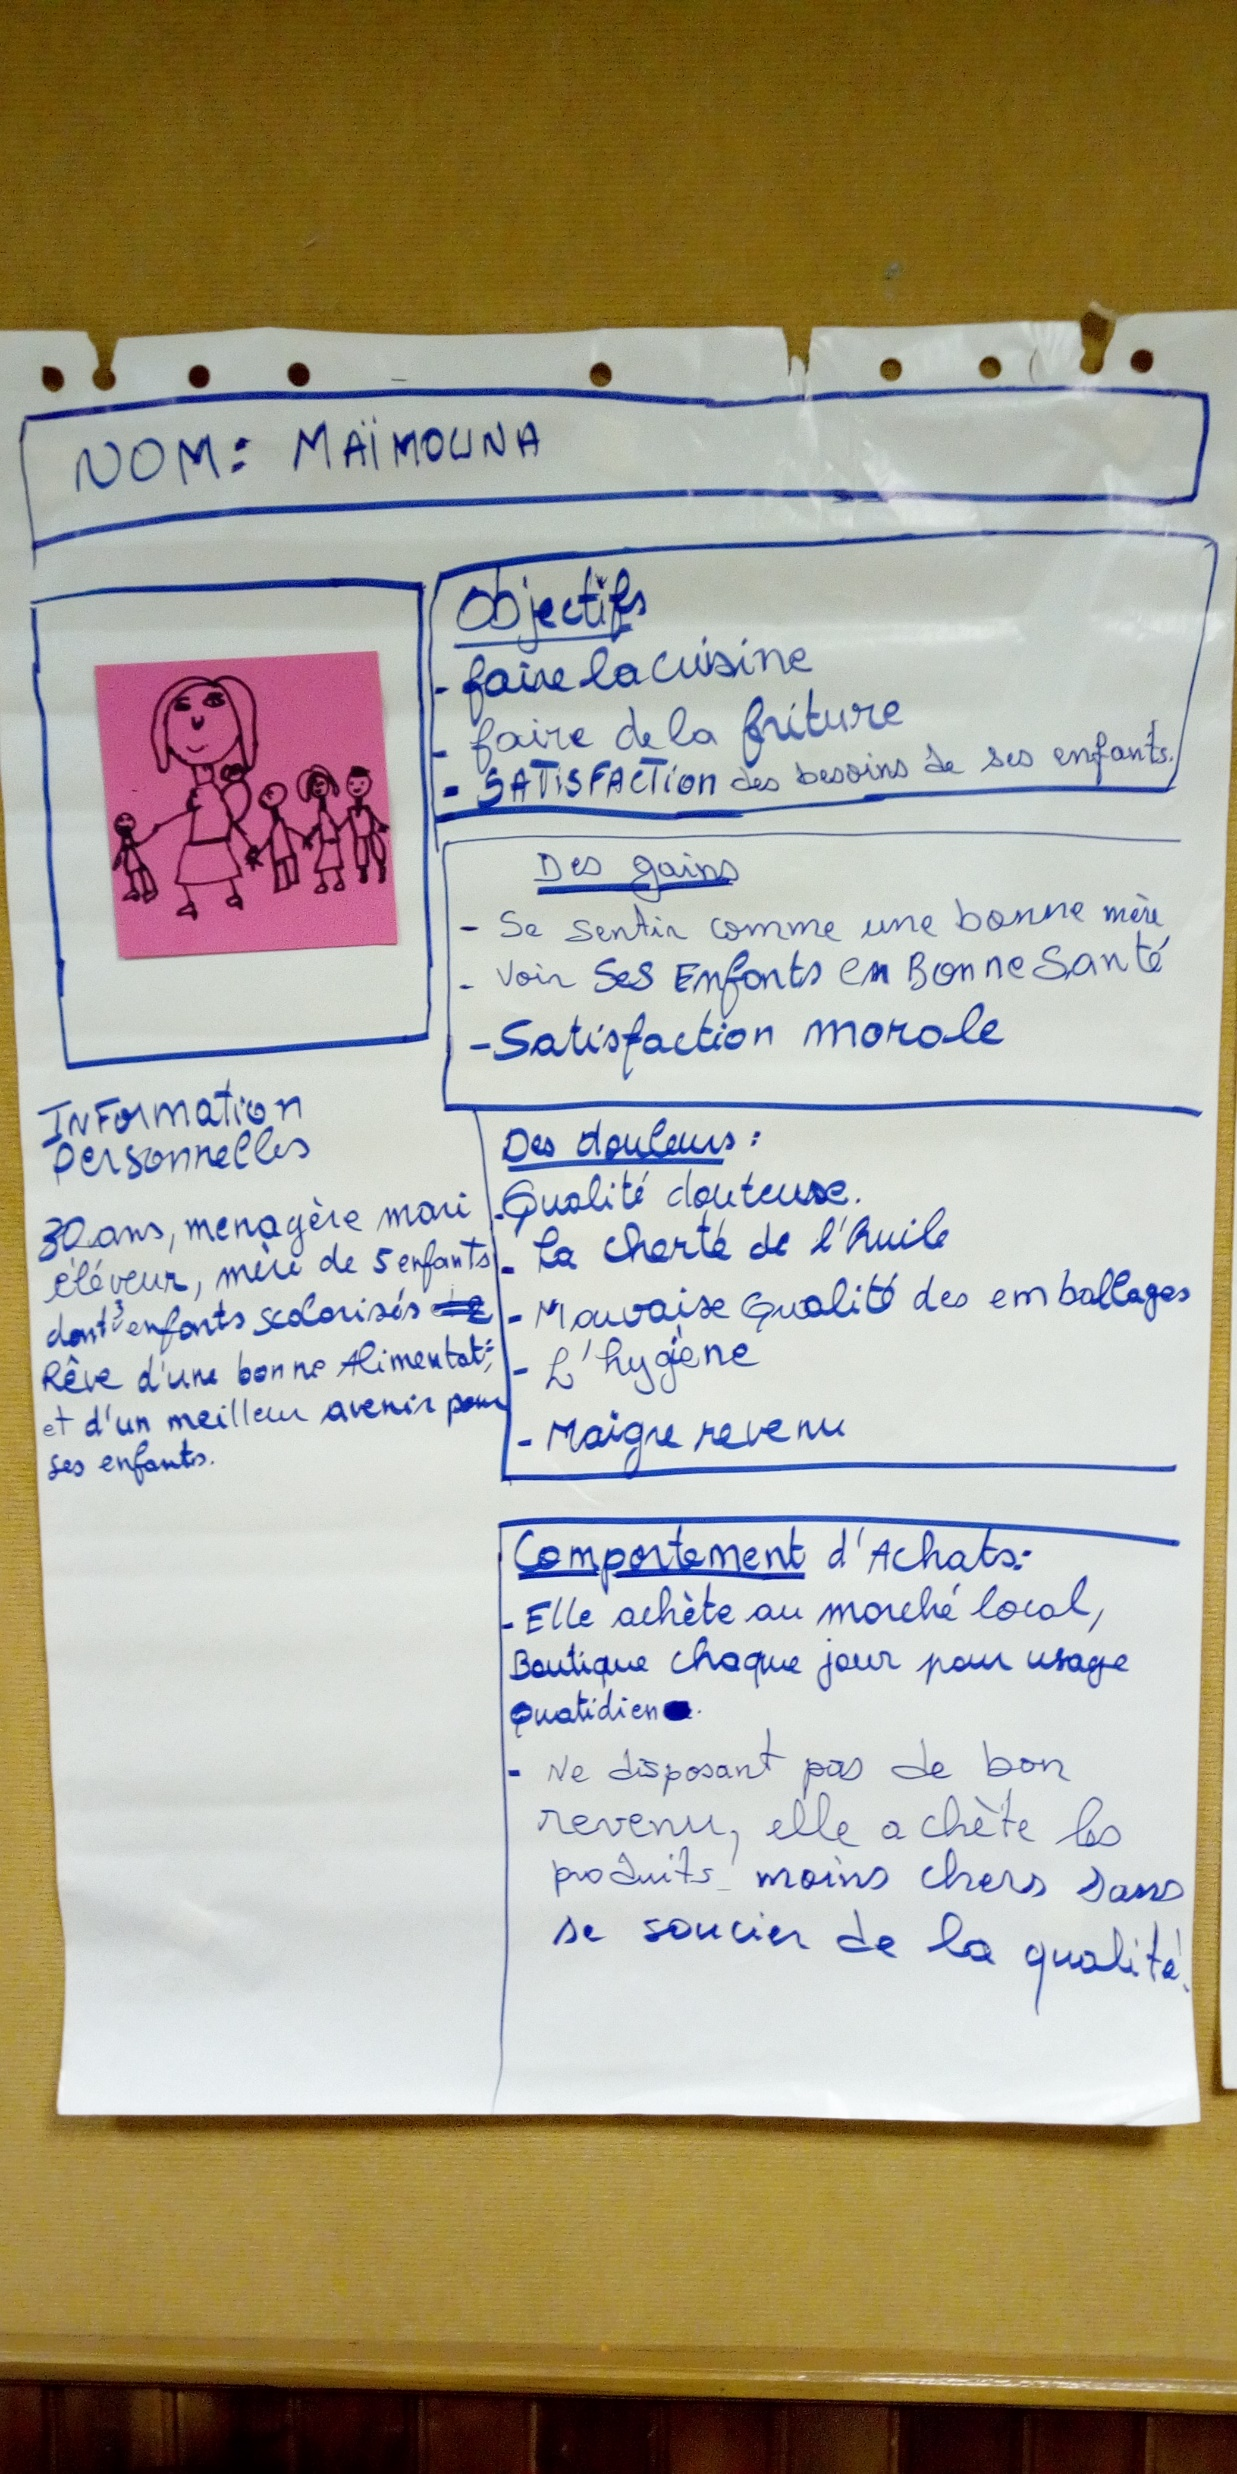 NOM: MAÏMOUNA
Objectifs
- faire la cuisine
- faire de la friture
- SATISFACTION des besoins de ses enfants.
Des gains
- Se sentir comme une bonne mère
- Voir SES Enfants en Bonne Santé
- Satisfaction morale
Information
Personnelles
30 ans, menagère mari
éléveur, mère de 5 enfants
dont 3 enfants scolarisés
Rêve d'une bonne Alimentat°
et d'un meilleur avenir pour
ses enfants.
Des douleurs :
- Qualité douteuse.
- La cherté de l'huile
- Mauvaise Qualité des emballages
- L'hygiène
- Maigre revenu
Comportement d'Achats:
- Elle achète au marché local,
Boutique chaque jour pour usage
Quotidien.
- Ne disposant pas de bon
revenu, elle achète les
produits moins chers sans
se soucier de la qualité.